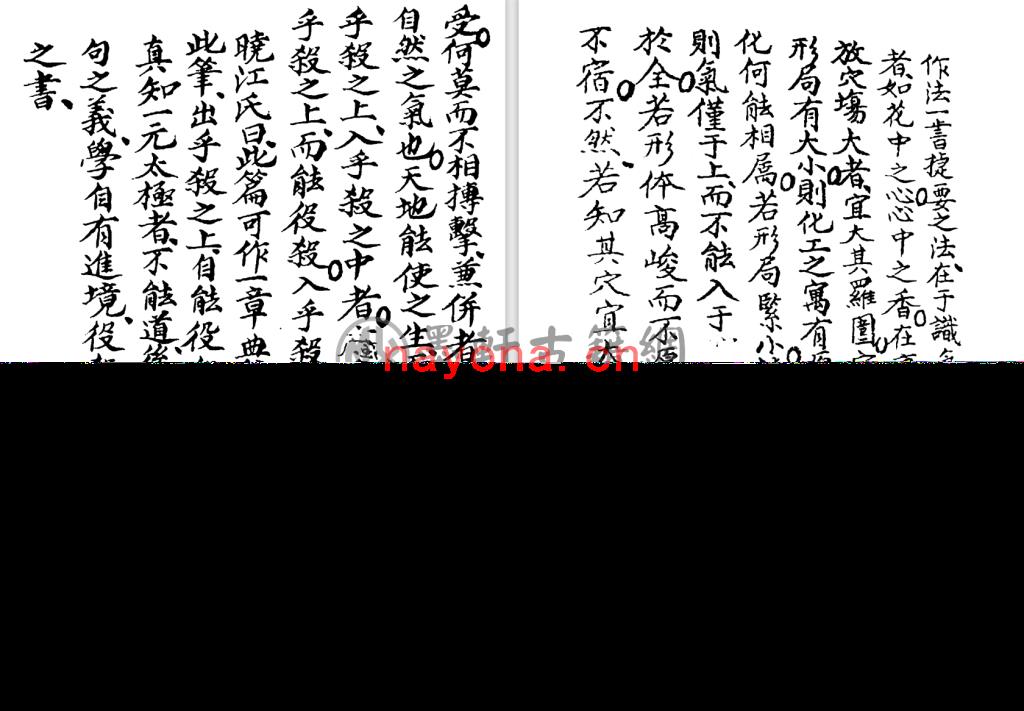 作法一書捷要之法、在于識
者、如花中之心、心中之香、在
放穴塲大者、宜大其羅圍、
形局有大小、則化工之寓有
化何能相属、若形局緊小
則氣僅于上、而不能入于
於全、若形体髙峻而不
不宿不然、若知其穴宜大
受、何莫而不相摶擊、兼併者
自然之氣也、天地能使之生
乎殺之上、入乎殺之中者、
乎殺之上、而能役殺、入乎殺
曉江氏曰、此篇可作一章典
此筆、出乎殺之上、自能役
真知一元太極者、不能道、後
句之義、學自有進境、役
之書、
墨軒古籍網
nayona.cn